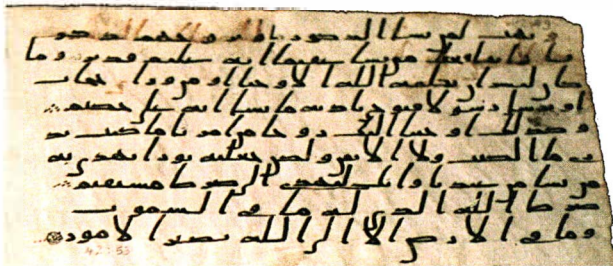 و يهب لمن يشا الذكور او يزوجهم ذكر
انا وانثا ويجعل من يشا عقيما انه عليم قدير وما
كان لبشر ان يكلمه الله الا وحيا او من وراي حجاب
او يرسل رسولا فيوحي باذنه ما يشا انه علي حكيم
وكذلك اوحينا اليك روحا من امرنا ما كنت تد
ري ما الكتب ولا الايمن ولكن جعلنه نورا نهدي به
من نشا من عبدنا وانك لتهدي الى صرط مستقيم
صرط الله الذي له ما في السموت
وما في الارض الا الى الله تصير الامور
42:53